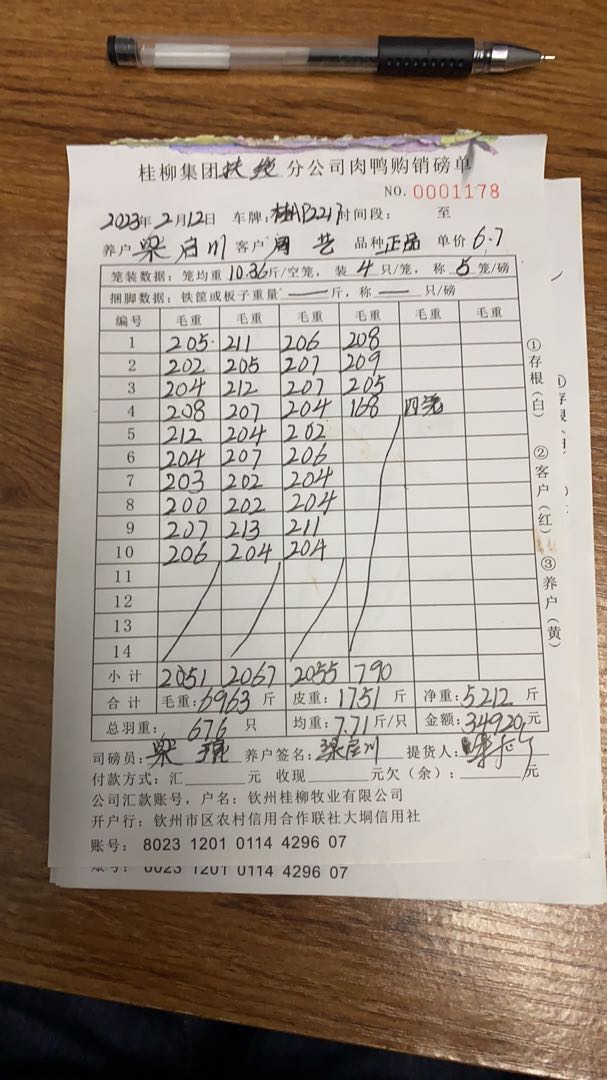 桂柳集团扶绥分公司肉鸭购销磅单
NO. 0001178
2023年2月12日 车牌: 时间段: 至
养户 梁启川 客户 周艺 品种 正品 单价 6.7
笼装数据: 笼均重 10.36 斤/空笼, 装 4 只/笼, 称 5 笼/磅
捆脚数据: 铁筐或板子重量 — 斤, 称 — 只/磅
编号 毛重 毛重 毛重 毛重 毛重 毛重
1 205 211 206 208
2 202 205 207 209
3 204 212 207 205
4 208 207 204 168 四笼
5 212 204 202
6 204 207 206
7 203 202 204
8 200 202 204
9 207 213 211
10 206 204 204
11
12
13
14
小计 2051 2067 2055 790
合计 毛重: 6963 斤 皮重: 1751 斤 净重: 5212 斤
总羽重: 676 只 均重: 7.71 斤/只 金额: 34920 元
司磅员: 梁 养户签名: 梁启川 提货人:
付款方式: 汇 元 收现 元欠(余): 元
公司汇款账号, 户名: 钦州桂柳牧业有限公司
开户行: 钦州市区农村信用合作联社大垌信用社
账号: 8023 1201 0114 4296 07
账号: 8023 1201 0114 4296 07
①存根(白) ②客户(红) ③养户(黄)